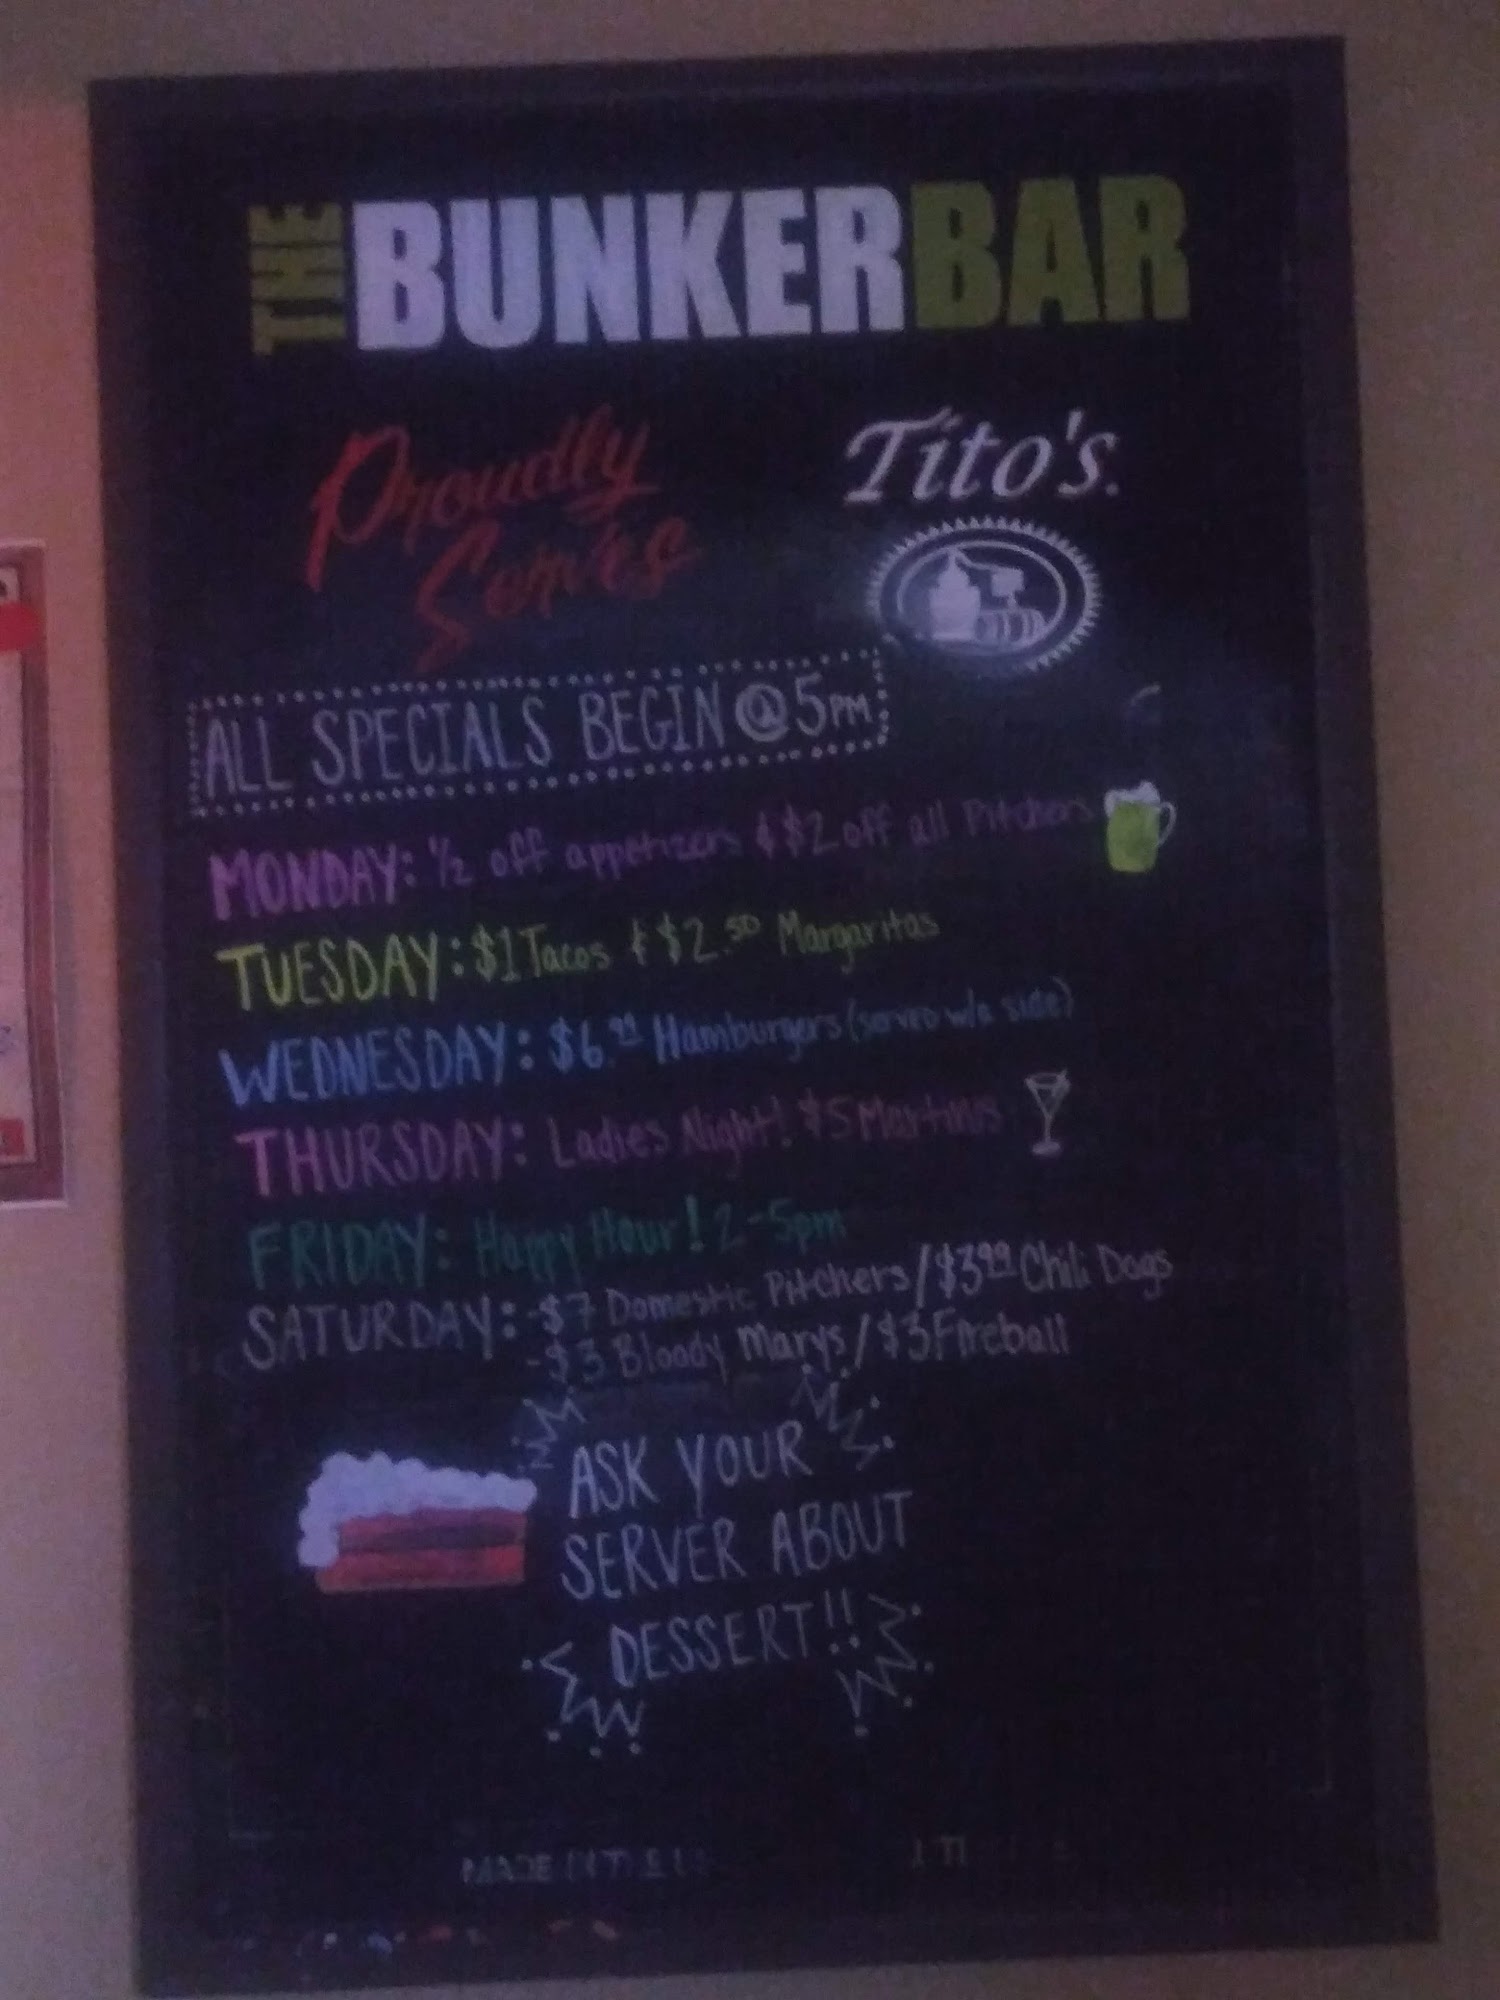 THE BUNKERBAR
Proudly Serves
Tito's.
ALL SPECIALS BEGIN @ 5PM
MONDAY: ½ off appetizers & $2 off all Pitchers
TUESDAY: $1 Tacos & $2.50 Margaritas
WEDNESDAY: $6.99 Hamburgers (served w/a side)
THURSDAY: Ladies Night! $5 Martinis
FRIDAY: Happy Hour! 2-5pm
SATURDAY: -$7 Domestic Pitchers/$3.99 Chili Dogs
-$3 Bloody Marys/$3 Fireball
ASK YOUR
SERVER ABOUT
DESSERT!!
MADE IN